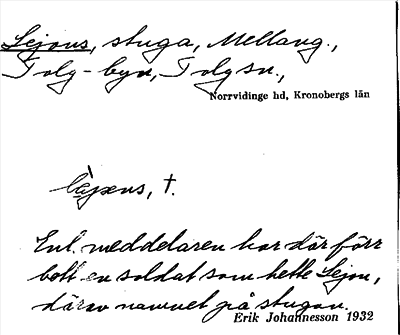 Lejons, stuga, Mellang.,
Tolg-byn, Tolg sn.,
Norrvidinge hd, Kronobergs län
Enl. meddelaren har där förr
bott en soldat som hette Lejon,
därav namnet på stugan.
Erik Johannesson 1932